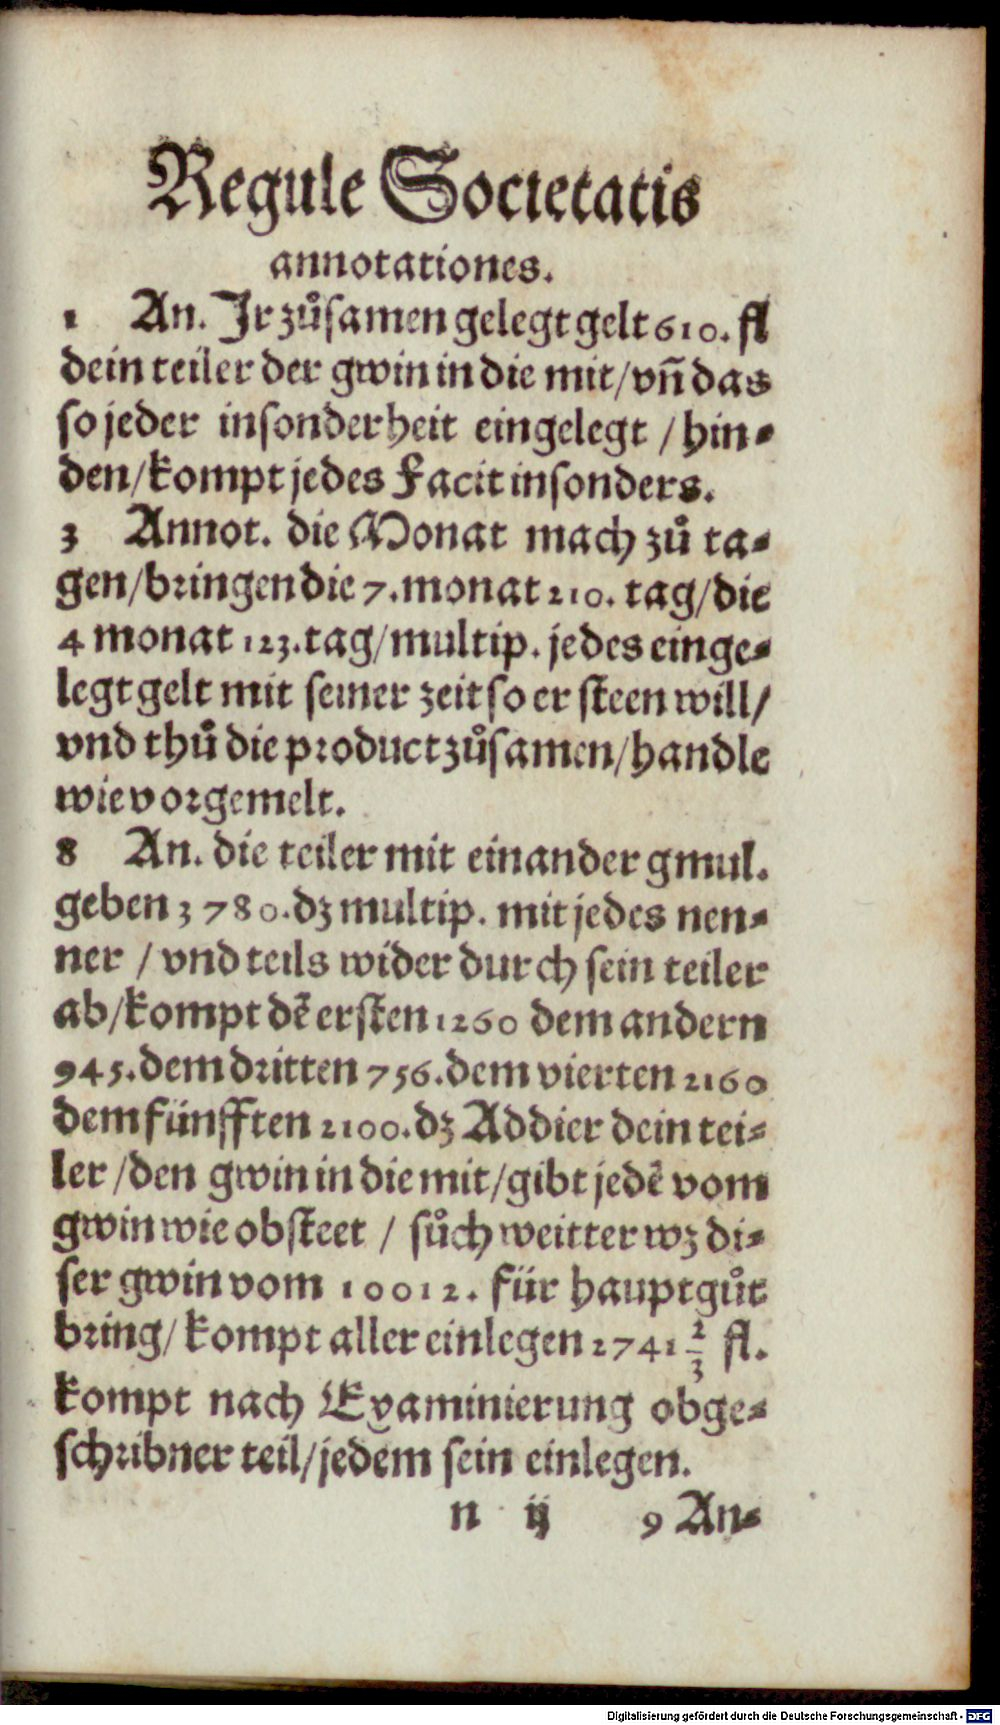 Regule Societatis
annotationes.
1 An. Jr zůsamen gelegt gelt 610. fl
dein teiler der gwin in die mit/vñ das
so jeder insonderheit eingelegt / hin⸗
den/kompt jedes Facit insonders.
3 Annot. die Monat mach zů ta⸗
gen/bringen die 7. monat 210. tag/die
4 monat 123. tag/multip. jedes einge⸗
legt gelt mit seiner zeit so er steen will/
vnd thů die product zůsamen/handle
wie vorgemelt.
8 An. die teiler mit einander gmul.
geben 3780. dz multip. mit jedes nen⸗
ner / vnd teils wider durch sein teiler
ab/kompt dē ersten 1260 dem andern
945. dem dritten 756. dem vierten 2160
dem fünfften 2100. dz Addier dein tei⸗
ler /den gwin in die mit/gibt jedē vom
gwin wie obsteet / sůch weitter wz di⸗
ser gwin vom 10012. für hauptgůt
bring/kompt aller einlegen 2741 2/3 fl.
kompt nach Examinierung obge⸗
schribner teil/jedem sein einlegen.
n ij 9 An⸗
Digitalisierung gefördert durch die Deutsche Forschungsgemeinschaft - DFG